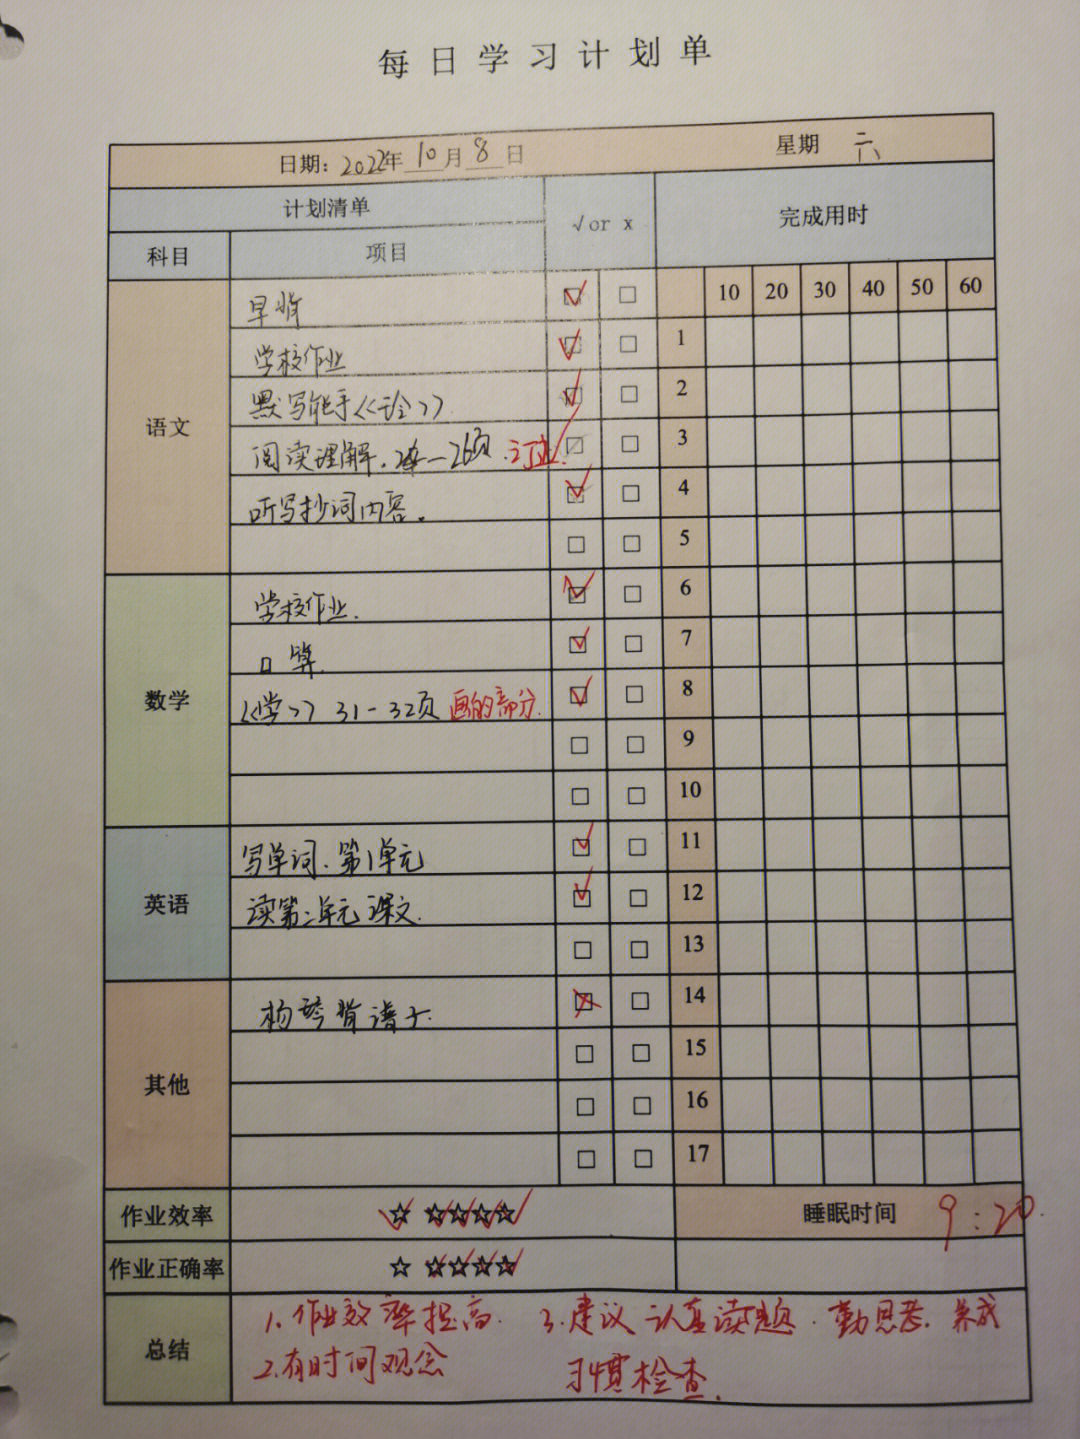 每日学习计划单
日期: 2022年 10 月 8 日 星期 六
计划清单 √ or x 完成用时
科目 项目
10 20 30 40 50 60
语文
早背
学校作业
默写能手《诊》
阅读理解. 26页. 订正.
听写抄词内容.
数学
学校作业.
口算.
《学》 31-32页 画的部分.
英语
写单词. 第1单元
读第二单元课文.
其他
杨琴背谱子.
1
2
3
4
5
6
7
8
9
10
11
12
13
14
15
16
17
作业效率 ☆☆☆☆☆ 睡眠时间 9:20.
作业正确率 ☆☆☆☆☆
总结
1. 作业效率提高.
2. 有时间观念
3. 建议认真读题. 勤思考. 养成
习惯检查.